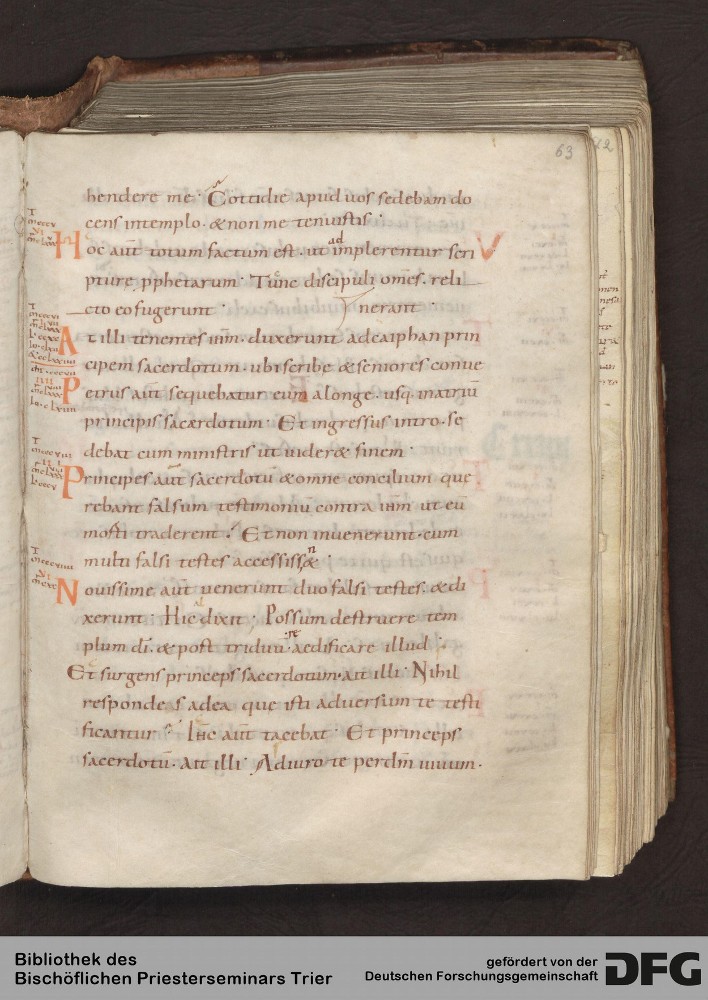 63
hendere me · Cottidie apud uos sedebam do
cens intemplo · & non me tenuistis ·
Hoc aūt totum factum est · ut adimplerentur scri
pture p̱phetarum · Tunc discipuli omēs · reli
cto eo fugerunt · nerant ·
At illi tenentes ihm̄ · duxerunt ad caiphan prin
cipem sacerdotum · ubi scribe & seniores conue
Petrus aūt sequebatur eum alonge · usq; in atriū
principis sacærdotum · Et ingressus intro · se
debat cum ministris ut uider& finem ·
Principes aūt sacerdotū & omne concilium que
rebant falsum testimoniū contra ihm̄ ut eū
morti traderent · Et non inuenerunt · cum
multi falsi testes accessiss&n ·
Nouissime aūt uenerunt duo falsi testes · & di
xerunt · Hic dixit ; Possum destruere tem
plum dī · & post triduū · reaedificare illud ·
Et surgens princeps sacerdotum · ait illi · Nihil
respondes adea que isti aduersum te testi
ficantur · Ihc aūt tacebat · Et princeps
sacerdotū · Ait illi · Adiuro te perdm̄ uiuum ·
Bibliothek des
Bischöflichen Priesterseminars Trier
gefördert von der
Deutschen Forschungsgemeinschaft
DFG